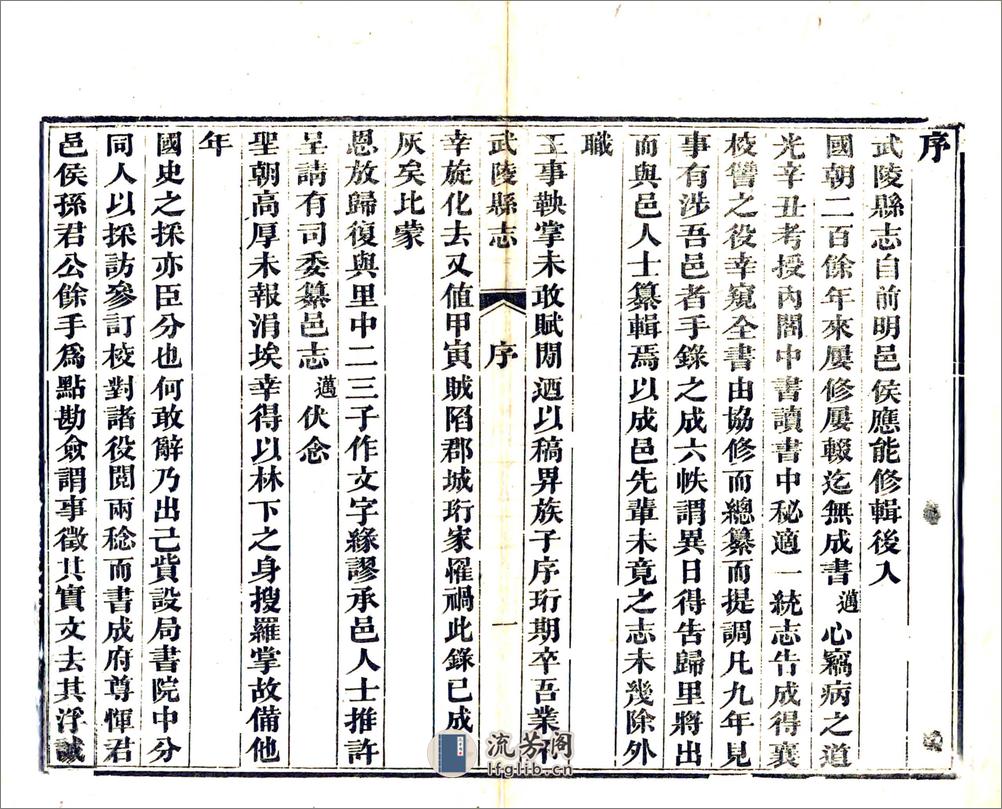 序
武陵縣志自前明邑侯應能修輯後入
國朝二百餘年來屢修屢輟迄無成書邁心竊病之道
光辛丑考授內閣中書讀書中秘適一統志告成得襄
校讐之役幸窺全書由協修而總纂而提調凡九年見
事有涉吾邑者手錄之成六帙謂異日得告歸里將出
而與邑人士纂輯焉以成邑先輩未竟之志未幾除外
職
王事鞅掌未敢賦閒迺以稿畀族子序珩期卒吾業不
武陵縣志 序 一
幸旋化去又值甲寅賊陷郡城珩家罹禍此錄已成
灰矣比蒙
恩放歸復與里中二三子作文字緣謬承邑人士推許
呈請有司委纂邑志邁伏念
聖朝高厚未報涓埃幸得以林下之身搜羅掌故備他
年
國史之採亦臣分也何敢辭乃出己貲設局書院中分
同人以採訪參訂校對諸役閱兩稔而書成府尊惲君
邑侯孫君公餘手為點勘僉謂事徵其實文去其浮誠
流芳閣
lfglib.cn